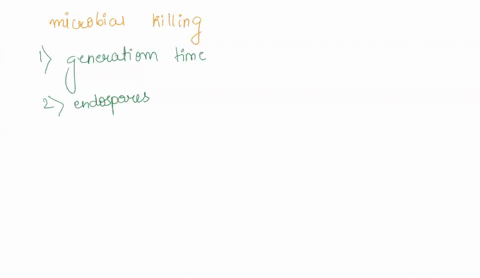 microbial killing
1) generation time
2) endospores